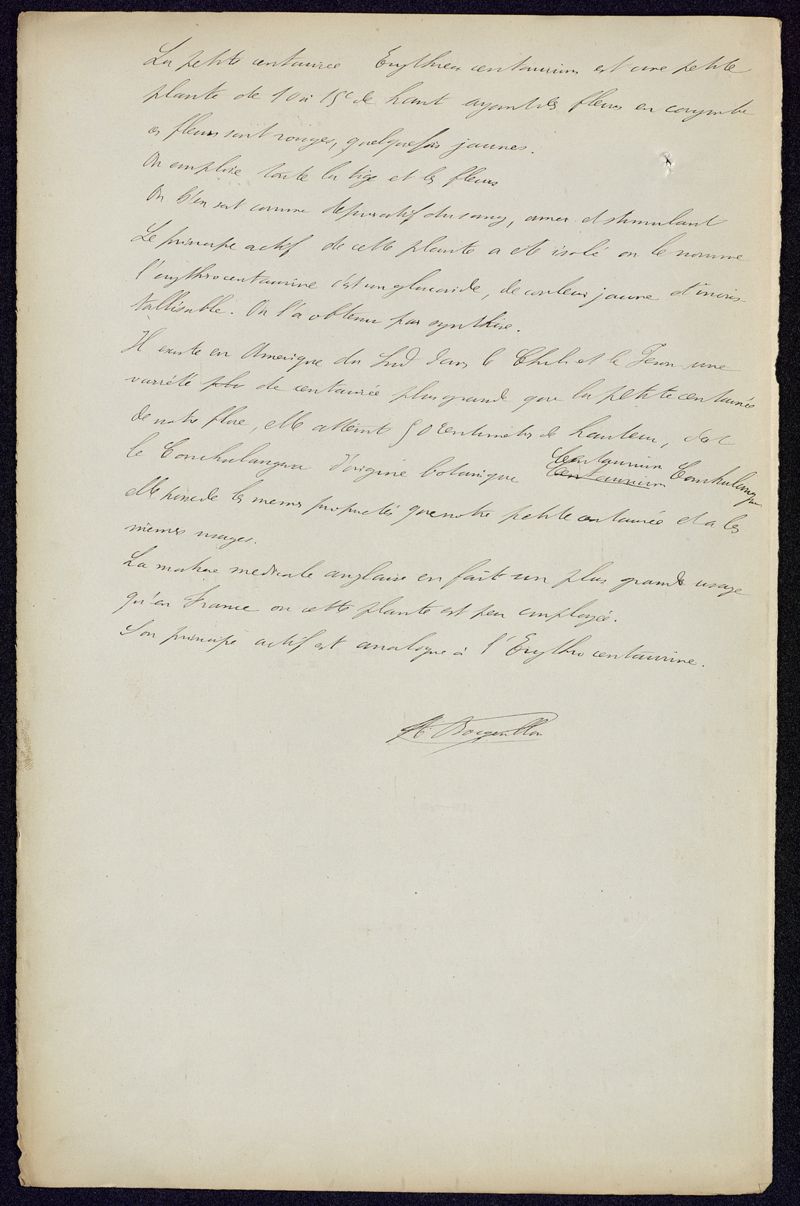 La petite centaurée Erythrea centaurium est une petite
plante de 10 à 15c de haut ayant des fleurs en corymbe
es fleurs sont rouges, quelquefois jaunes.
On emploie toute la tige et les fleurs
On s'en sert comme dépuratif du sang, amer et stimulant
Le principe actif de cette plante a été isolé on le nomme
l'erythrocentaurine c'est un glucoside, de couleur jaune d'incris-
tallisable. On l'a obtenu par synthèse.
Il existe en Amerique du Sud dans le Chili et le Perou une
variété plu de centaurée plus grande que la petite centaurée
de notre flore, elle atteint 50 centimètres de hauteur, c'est
le Canchalangua d'origine botanique Centaurium Centaurium Canchalangua
elle possède les memes propriétés que notre petite centaurée et a les
mêmes usages.
La matière médicale anglaise en fait un plus grande usage
qu'en France ou cette plante est peu employée.
Son principe actif est analogue à l'Erythrocentaurine.